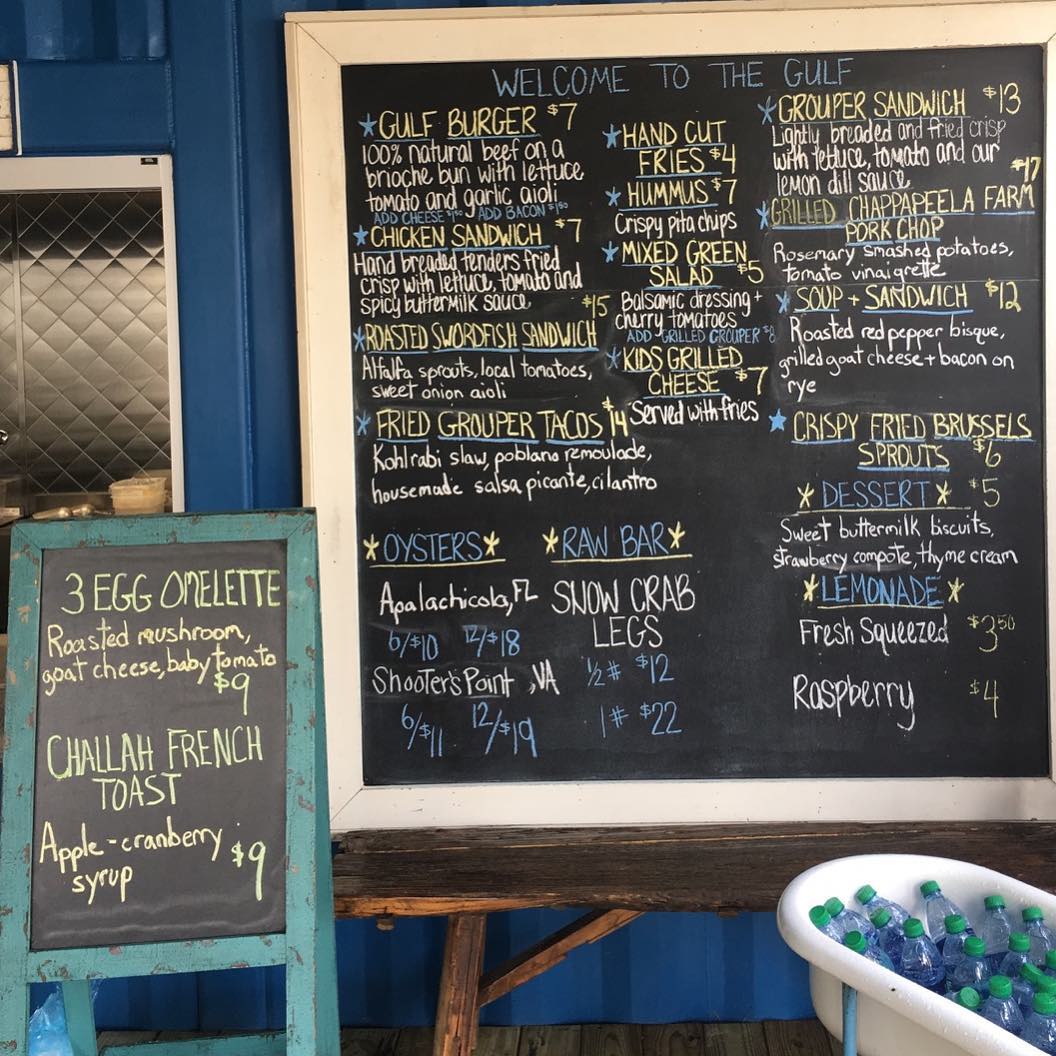 WELCOME TO THE GULF
GULF BURGER $7
100% natural beef on a
brioche bun with lettuce
tomato and garlic aioli
ADD CHEESE $1.50 ADD BACON $1.50
CHICKEN SANDWICH $7
Hand breaded tenders fried
crisp with lettuce, tomato and
spicy buttermilk sauce
$15
ROASTED SWORDFISH SANDWICH
Alfalfa sprouts, local tomatoes,
sweet onion aioli
FRIED GROUPER TACOS $14
Kohlrabi slaw, poblano remoulade,
housemade salsa picante, cilantro
HAND CUT
FRIES $4
HUMMUS $7
Crispy pita chips
MIXED GREEN
SALAD $5
Balsamic dressing +
cherry tomatoes
ADD GRILLED GROUPER $8
KIDS GRILLED
CHEESE $7
Served with fries
GROUPER SANDWICH $13
Lightly breaded and fried crisp
with lettuce, tomato and our
lemon dill sauce
$17
GRILLED CHAPPAPEELA FARM
PORK CHOP
Rosemary smashed potatoes,
tomato vinaigrette
SOUP + SANDWICH $12
Roasted red pepper bisque,
grilled goat cheese + bacon on
rye
CRISPY FRIED BRUSSELS
SPROUTS $6
DESSERT $5
Sweet buttermilk biscuits,
strawberry compote, thyme cream
LEMONADE
Fresh Squeezed $3.50
Raspberry $4
OYSTERS
Apalachicola, FL
6/$10 12/$18
Shooter's Point, VA
6/$11 12/$19
RAW BAR
SNOW CRAB
LEGS
½# $12
1# $22
3 EGG OMELETTE
Roasted mushroom,
goat cheese, baby tomato
$9
CHALLAH FRENCH
TOAST
Apple-cranberry
syrup $9